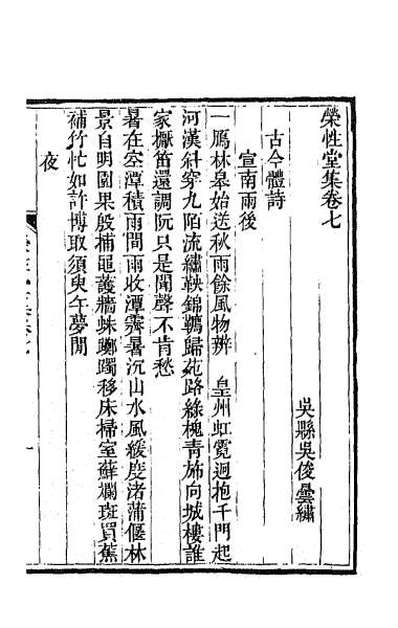 榮性堂集卷七
吳縣吳俊曇繡
古今體詩
宣南雨後
一鴈林皋始送秋雨餘風物辨　皇州虹霓迴抱千門起
河漢斜穿九陌流繡鞅錦韉歸苑路綠槐青斾向城樓誰
家擫笛還調阮只是聞聲不肯愁
暑在空潭積雨間雨收潭霽暑沉山水風緩度渚蒲偃林
景自明園果殷捕黽護牆蛛躑躅移床掃室蘚斕斑買蕉
補竹忙如許博取須臾午夢閒
夜